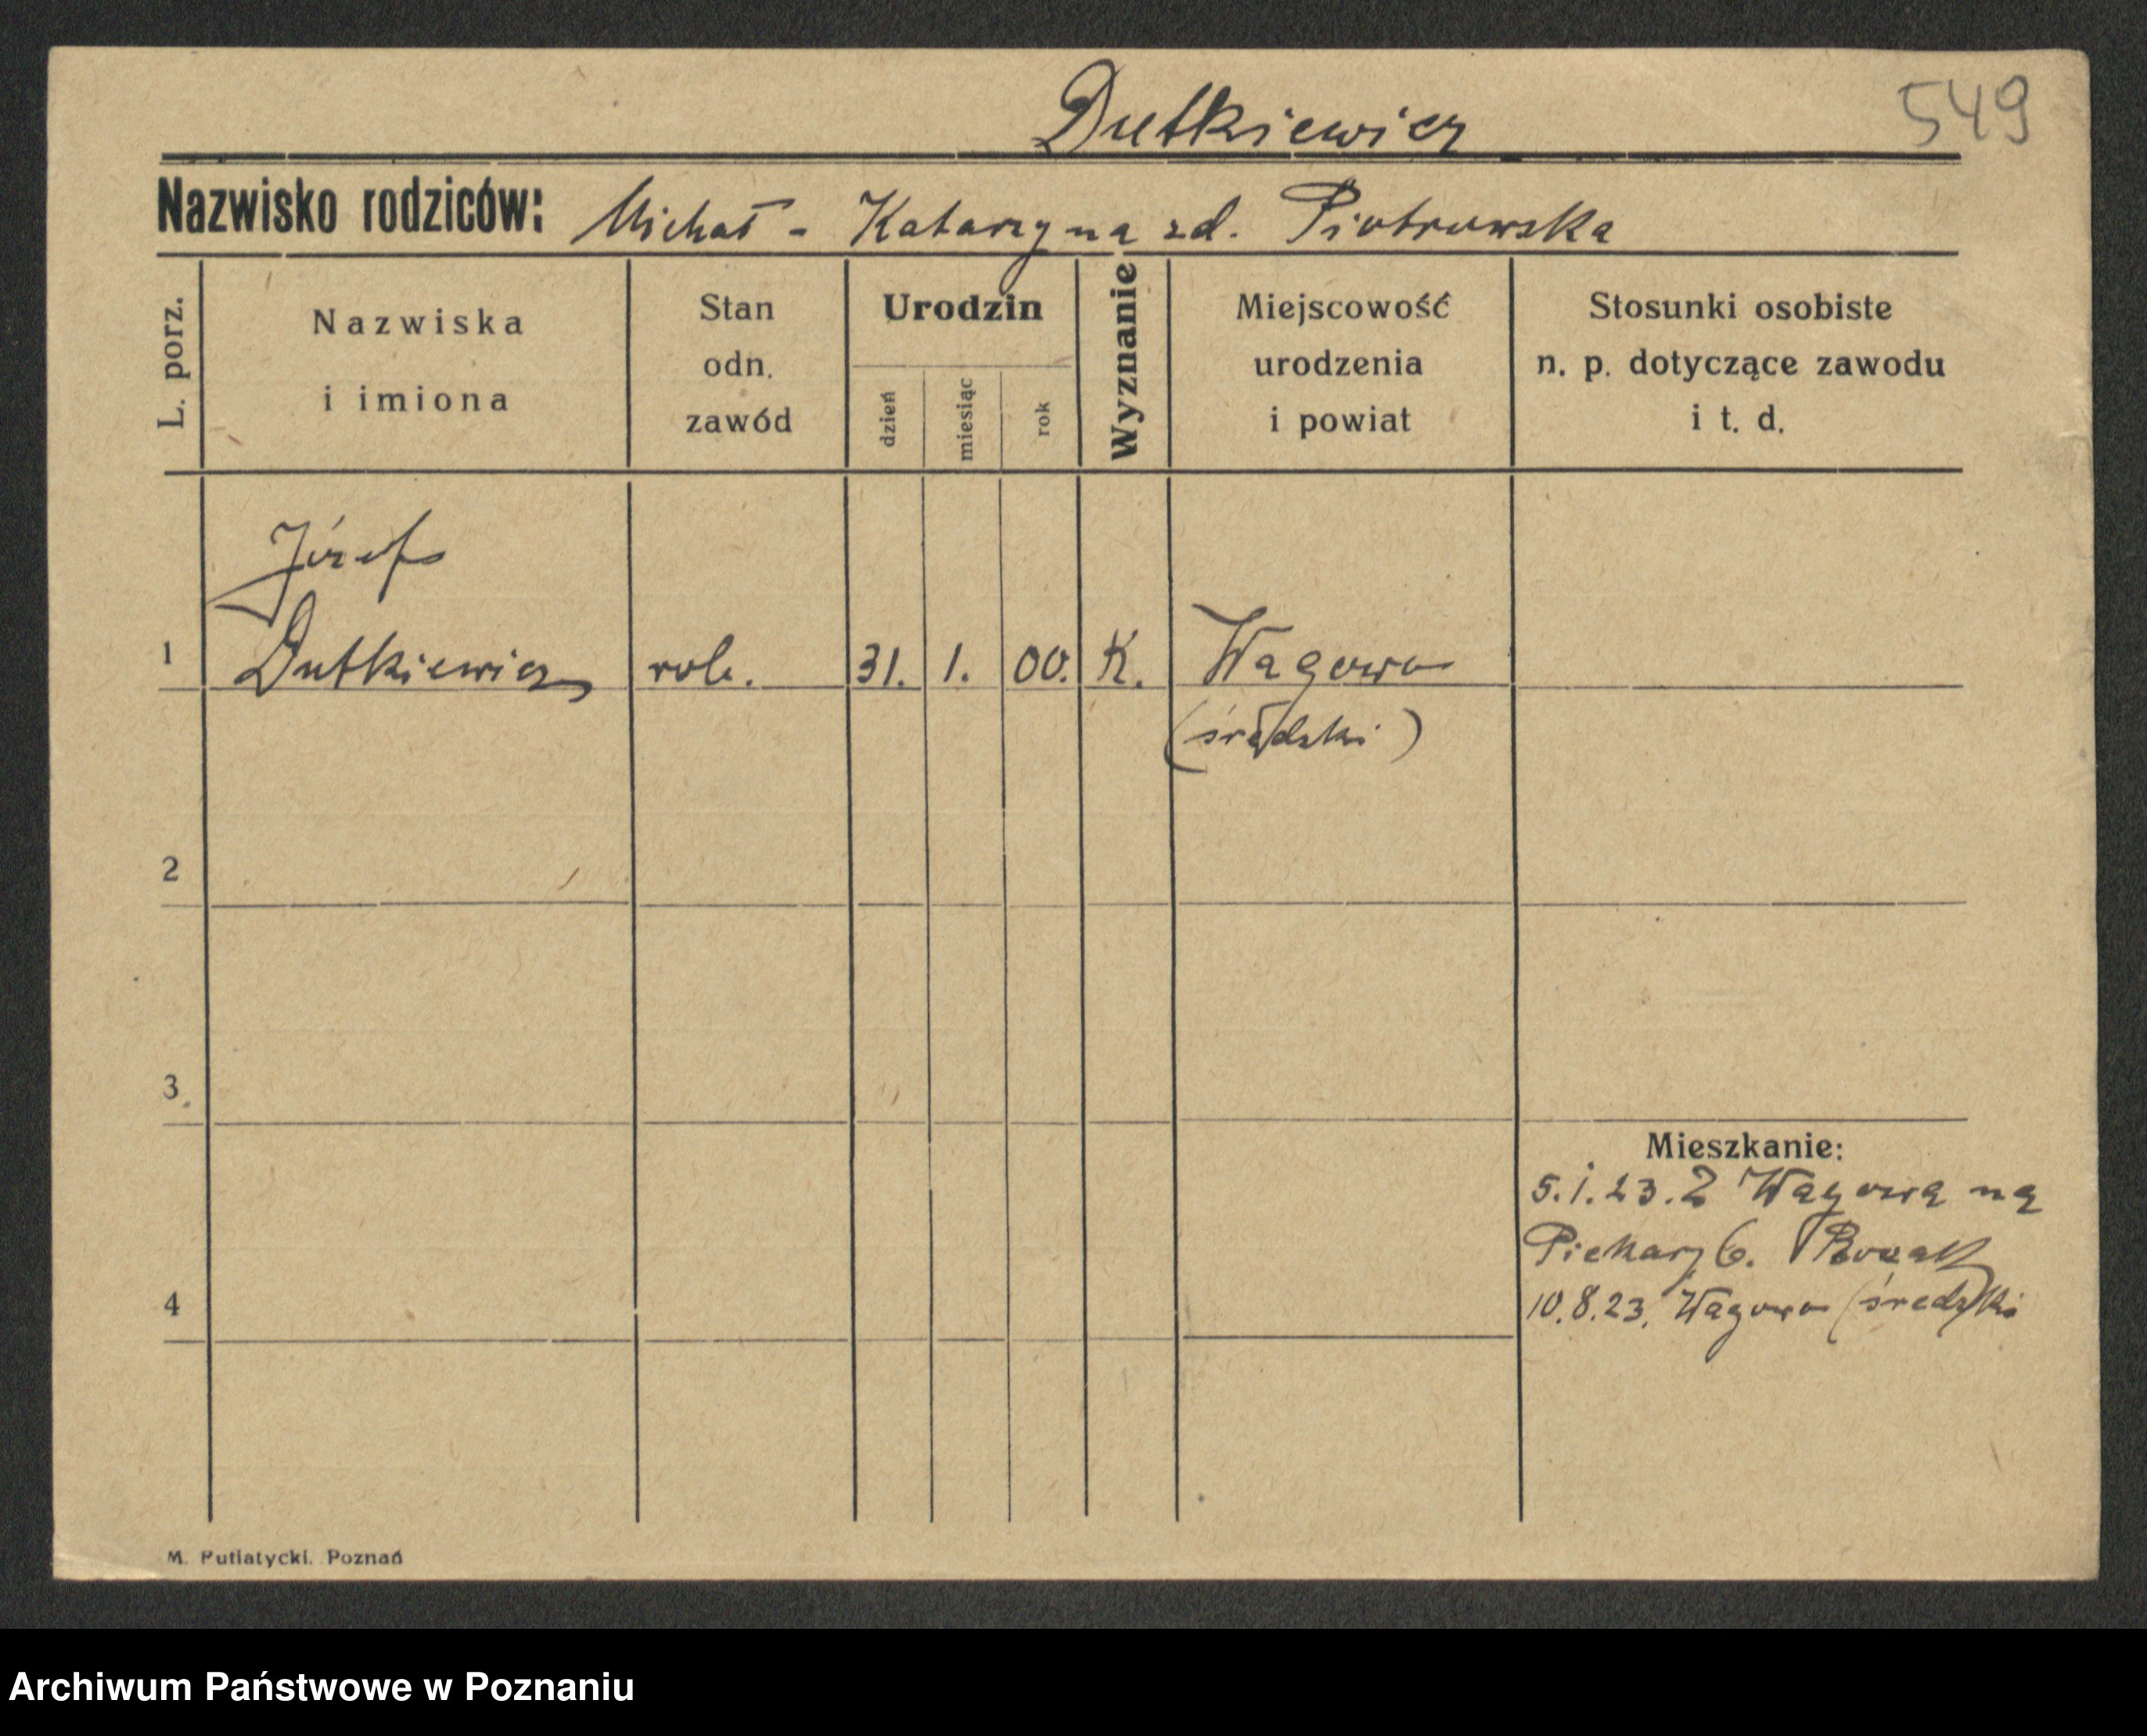 Dutkiewicz
549
Nazwisko rodziców: Michał - Katarzyna zd. Piotrowska
L. porz.
Nazwiska
i imiona
Stan
odn.
zawód
Urodzin
dzień
miesiąc
rok
Wyznanie
Miejscowość
urodzenia
i powiat
Stosunki osobiste
n. p. dotyczące zawodu
i t. d.
Józef
1 Dutkiewicz rob. 31. 1. 00. K. Wagowo
(średzki)
2
3
Mieszkanie:
5.1.23. Z Wagowa na
Piekary 6.
10.8.23. Wagowo (średzki
4
M. Putiatycki. Poznań
Archiwum Państwowe w Poznaniu